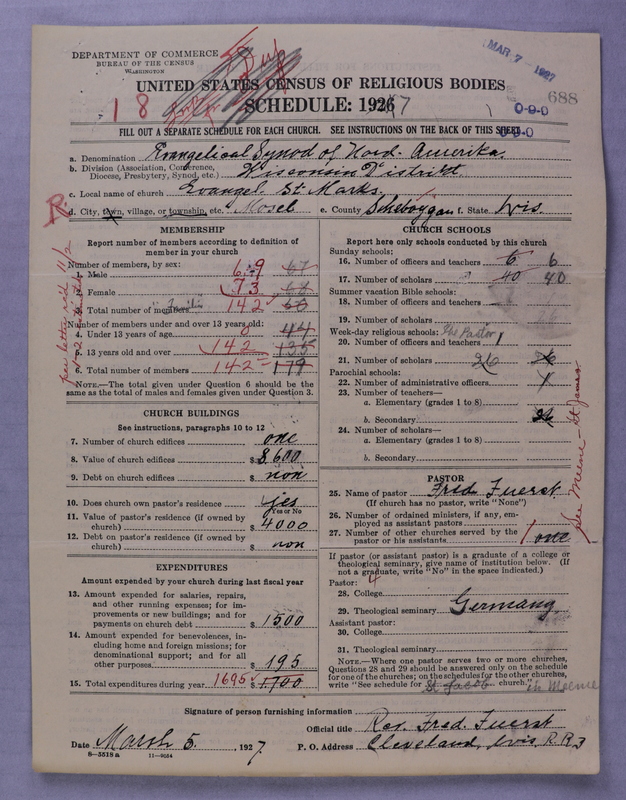 DEPARTMENT OF COMMERCE
BUREAU OF THE CENSUS
WASHINGTON
MAR 7 1927
688
UNITED STATES CENSUS OF RELIGIOUS BODIES
1 8
SCHEDULE: 1926
0-9-0
0-9-0
FILL OUT A SEPARATE SCHEDULE FOR EACH CHURCH. SEE INSTRUCTIONS ON THE BACK OF THIS SHEET
a. Denomination Evangelical Synod of Nord. Amerika.
b. Division (Association, Conference, Diocese, Presbytery, Synod, etc.) Wisconsin District.
c. Local name of church Evangel. St. Marks.
R.
d. City, town, village, or township, etc. Mosel e. County Scheboygan f. State Wis.
MEMBERSHIP
Report number of members according to definition of
member in your church
Number of members, by sex:
1. Male 69 67
2. Female 73 68
3. Total number of members 142
Number of members under and over 13 years old:
4. Under 13 years of age 0 44
5. 13 years old and over 142 135
6. Total number of members 142 179
NOTE.—The total given under Question 6 should be the
same as the total of males and females given under Question 3.
CHURCH BUILDINGS
See instructions, paragraphs 10 to 12
7. Number of church edifices one
8. Value of church edifices $ 8,600
9. Debt on church edifices $ non
10. Does church own pastor's residence yes
Yes or No
11. Value of pastor's residence (if owned by
church) $ 4000
12. Debt on pastor's residence (if owned by
church) non
EXPENDITURES
Amount expended by your church during last fiscal year
13. Amount expended for salaries, repairs,
and other running expenses; for im-
provements or new buildings; and for
payments on church debt $ 1500
14. Amount expended for benevolences, in-
cluding home and foreign missions; for
denominational support; and for all
other purposes $ 195
15. Total expenditures during year 1695 $ 1700
CHURCH SCHOOLS
Report here only schools conducted by this church
Sunday schools:
16. Number of officers and teachers 6 6
17. Number of scholars 40 40
Summer vacation Bible schools:
18. Number of officers and teachers
19. Number of scholars
Week-day religious schools: The Pastor
20. Number of officers and teachers 1
21. Number of scholars 26 26
Parochial schools:
22. Number of administrative officers 1
23. Number of teachers—
a. Elementary (grades 1 to 8)
b. Secondary
24. Number of scholars—
a. Elementary (grades 1 to 8)
b. Secondary
See Meeme - St James
PASTOR
25. Name of pastor Fred. Fuerst
(If church has no pastor, write "None")
26. Number of ordained ministers, if any, em-
ployed as assistant pastors
27. Number of other churches served by the
pastor or his assistants 1 one
If pastor (or assistant pastor) is a graduate of a college or
theological seminary, give name of institution below. (If
not a graduate, write "No" in the space indicated.)
Pastor: 4
28. College
29. Theological seminary Germany
Assistant pastor:
30. College
31. Theological seminary
NOTE.—Where one pastor serves two or more churches,
Questions 28 and 29 should be answered only on the schedule
for one of the churches; on the schedules for the other churches,
write "See schedule for St. Jacob church." in Meeme
Signature of person furnishing information
Official title Rev. Fred. Fuerst
Date March 5. 1927. P. O. Address Cleveland, Wis. R.R. 3
8—5518 a 11—9054